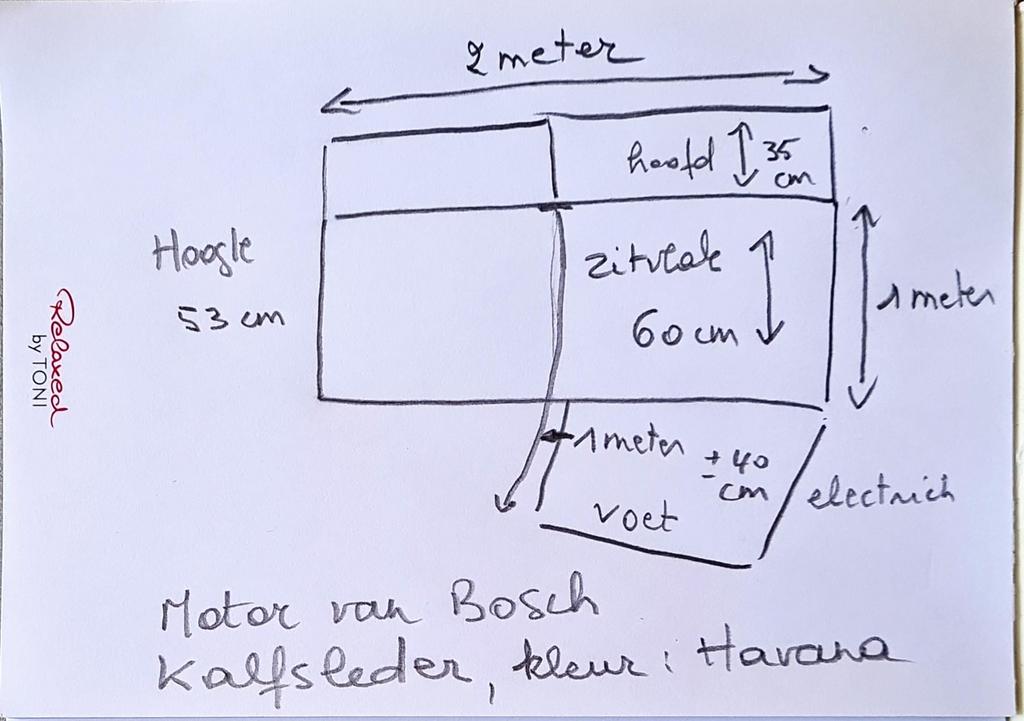 2 meter
hoofd 35
cm
Hoogte
53 cm
zitvlak
60 cm
1 meter
1 meter
± 40
cm
voet
electrich
Motor van Bosch
Kalfsleder, kleur : Havana
Relaxed
by TONI